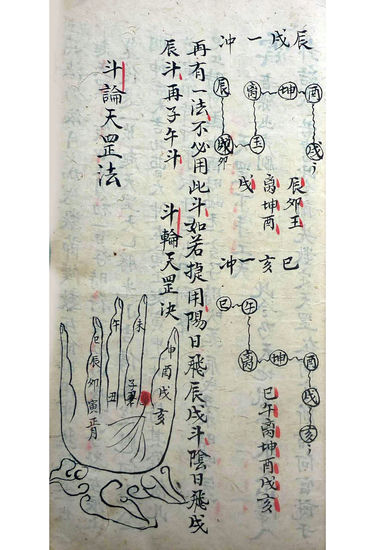 辰戌一冲
辰
卯
玉
离
坤
酉
戌
辰卯玉
离坤酉
戌
巳亥一冲
巳
午
离
坤
酉
戌
亥
巳午离坤酉戌亥
再有一法不必用此斗如若捷用陽日飛辰戌斗陰日飛戌
辰斗再子午斗
斗輪天罡决
斗論天罡法
申酉戌亥
未
午
子
丑
巳辰卯寅正月